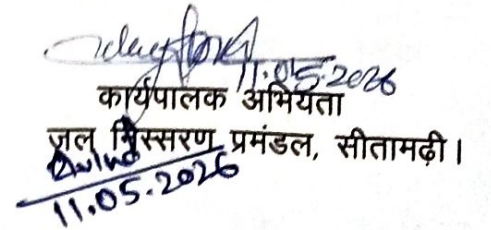 11.05.2026
कार्यपालक अभियंता
जल निस्सरण प्रमंडल, सीतामढ़ी।
11.05.2026